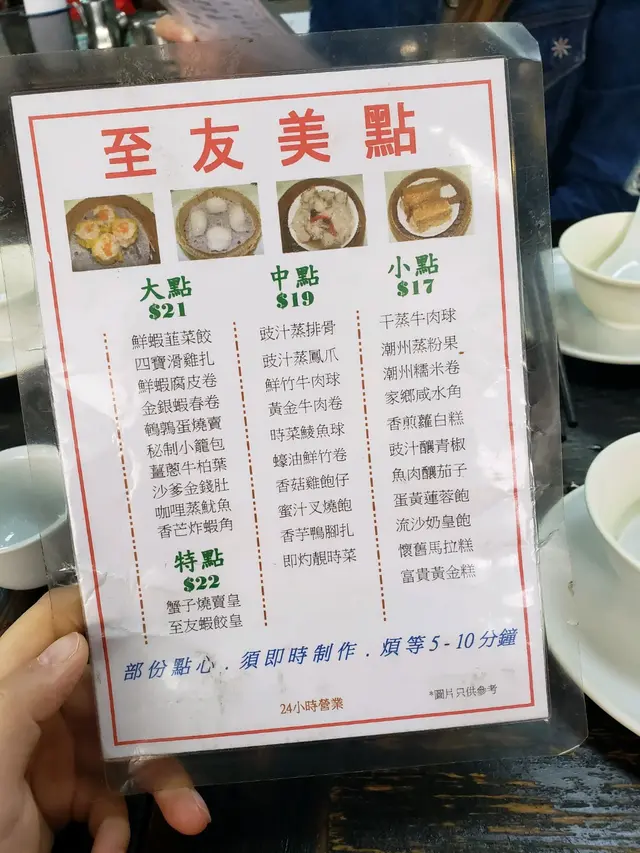 至友美點
大點
$21
鮮蝦韮菜餃
四寶滑雞扎
鮮蝦腐皮卷
金銀蝦春卷
鵪鶉蛋燒賣
秘制小籠包
薑蔥牛柏葉
沙爹金錢肚
咖哩蒸魷魚
香芒炸蝦角
特點
$22
蟹子燒賣皇
至友蝦餃皇
中點
$19
豉汁蒸排骨
豉汁蒸鳳爪
鮮竹牛肉球
黃金牛肉卷
時菜鯪魚球
蠔油鮮竹卷
香菇雞飽仔
蜜汁叉燒飽
香芋鴨腳扎
即灼靚時菜
小點
$17
干蒸牛肉球
潮州蒸粉果
潮州糯米卷
家鄉咸水角
香煎蘿白糕
豉汁釀青椒
魚肉釀茄子
蛋黃蓮蓉飽
流沙奶皇飽
懷舊馬拉糕
富貴黃金糕
部份點心．須即時制作．煩等5-10分鐘
24小時營業
*圖片只供參考